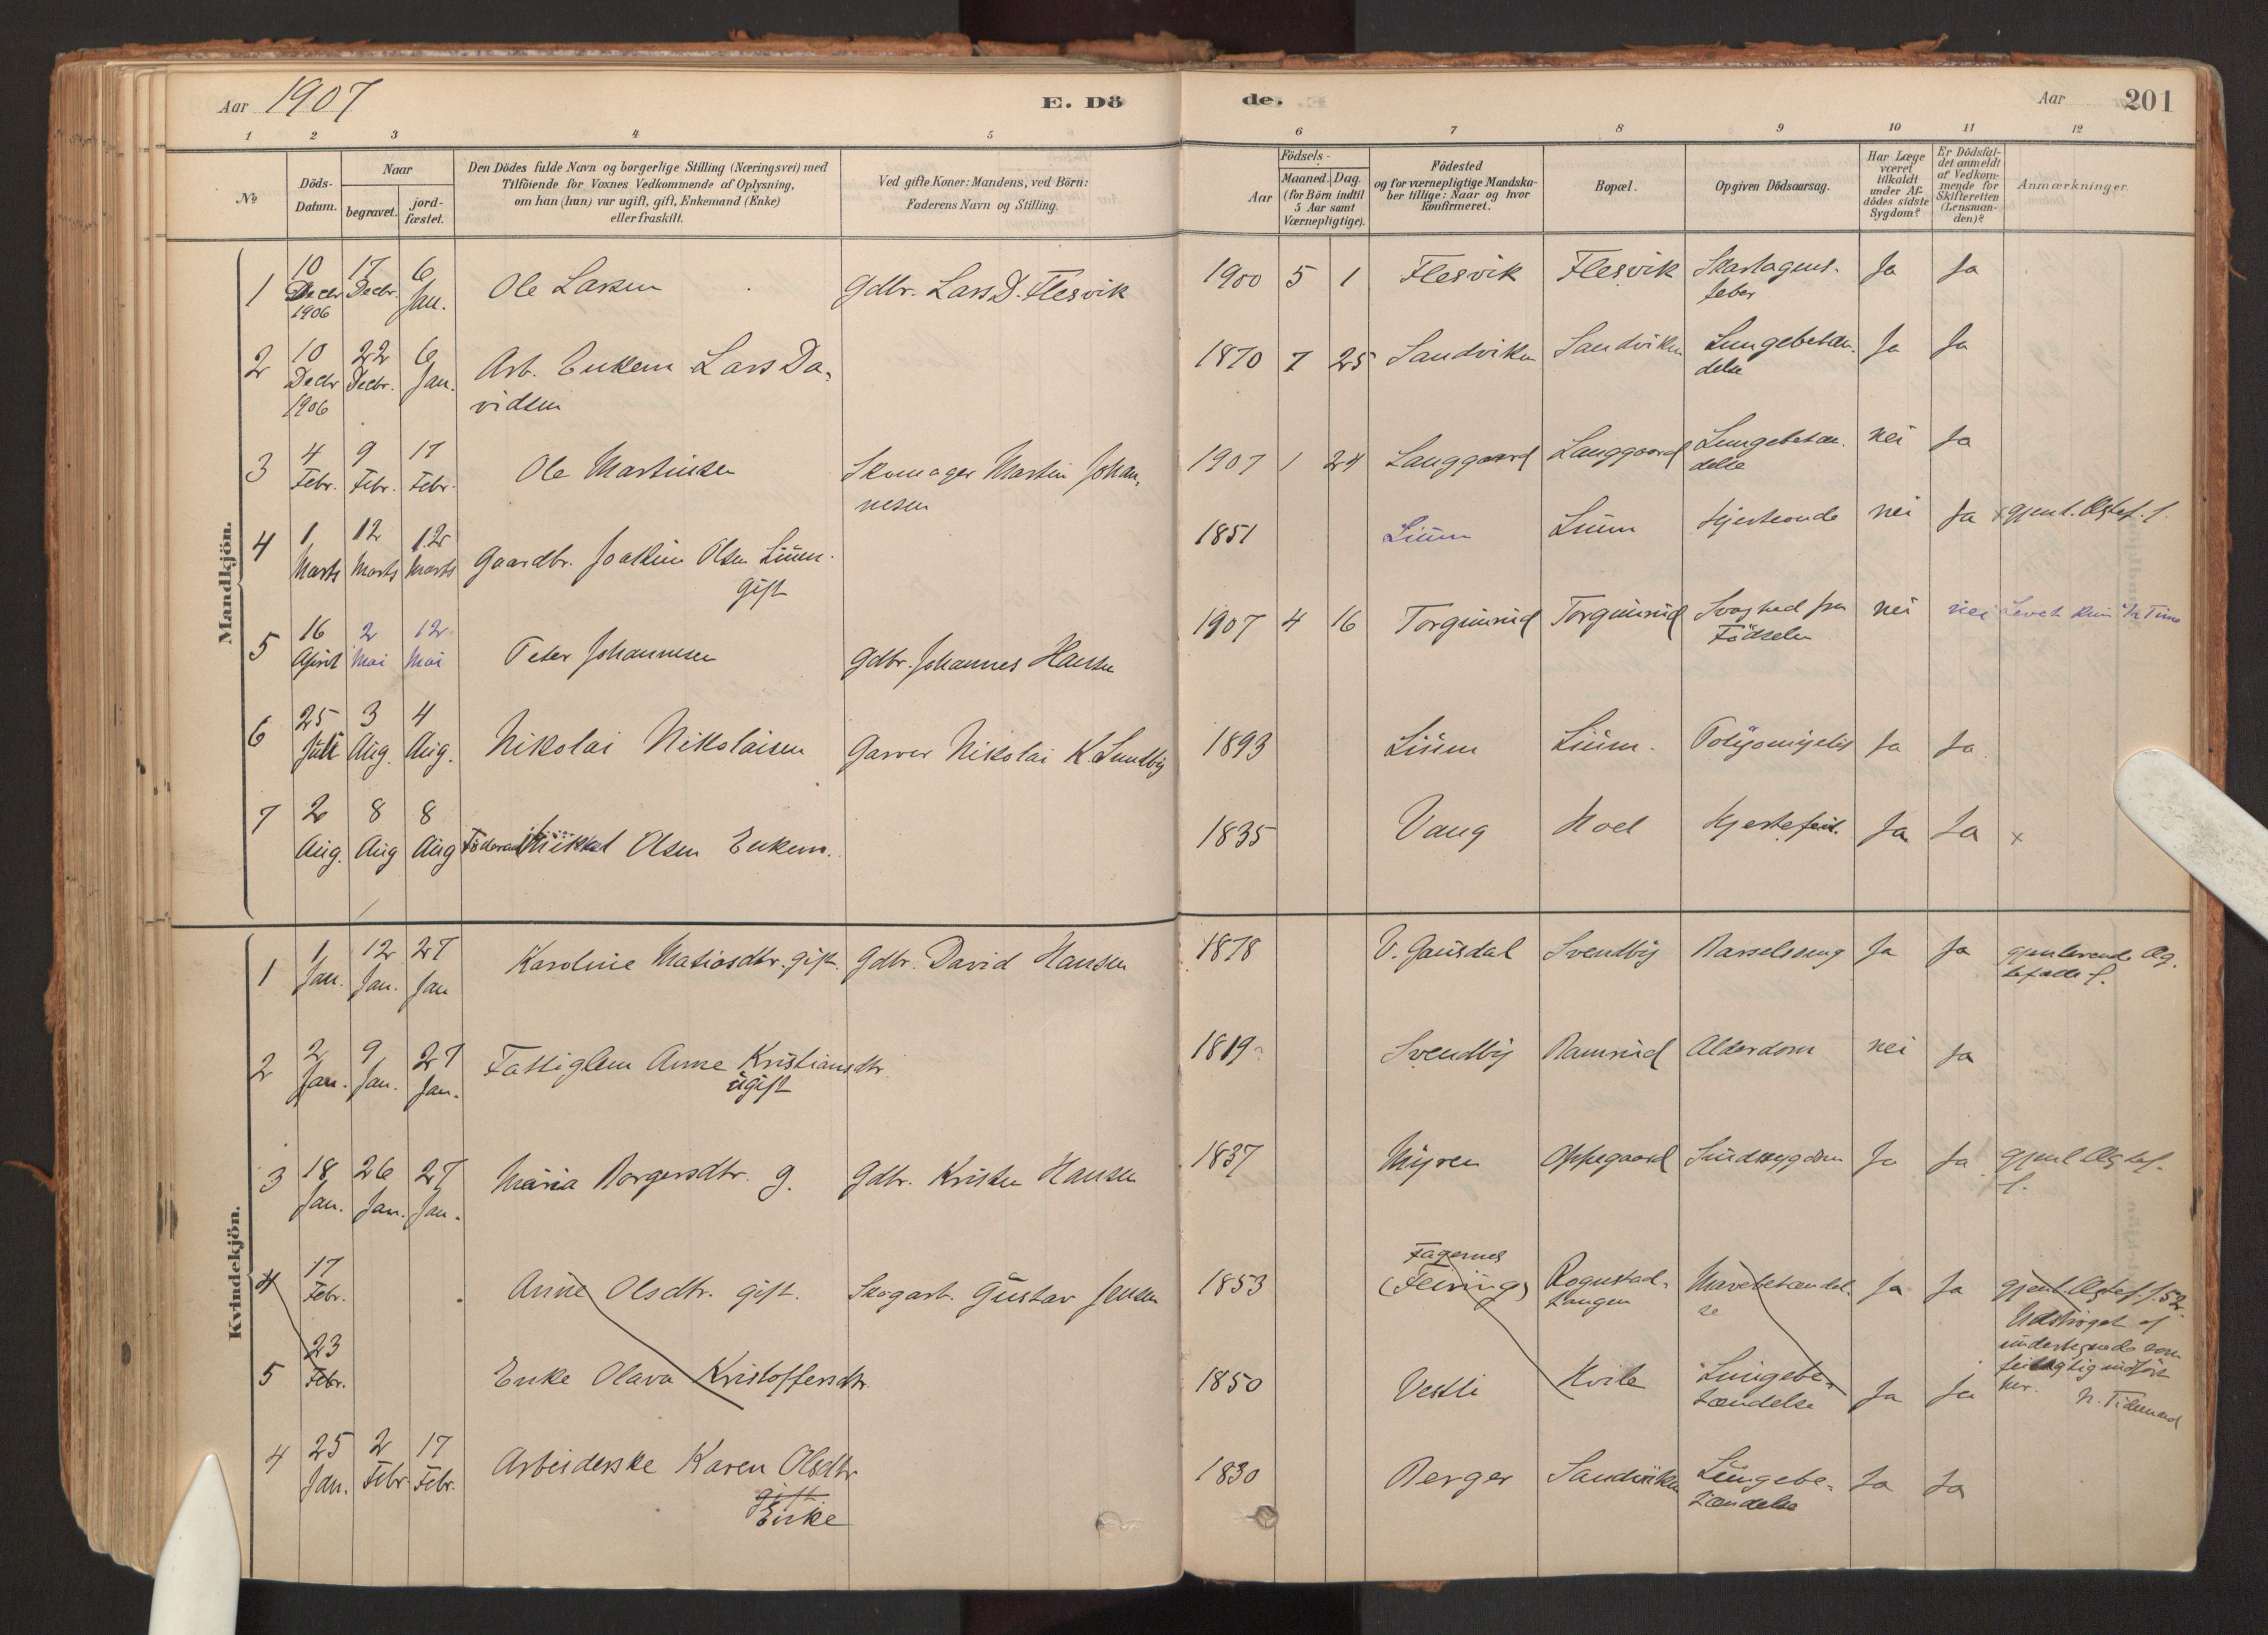 Aar 1907
E. Dö
de.
Aar
201
1 2 3 4 5 6 7 8 9 10 11 12
№
Döds-
Datum.
Naar
begravet.
jord-
fæstet.
Den Dödes fulde Navn og borgerlige Stilling (Næringsvei) med
Tilföiende for Voxnes Vedkommende af Oplysning,
om han (hun) var ugift, gift, Enkemand (Enke)
eller fraskilt.
Ved gifte Koner: Mandens, ved Börn:
Faderens Navn og Stilling.
Födsels-
Aar
Maaned. Dag
(for Börn indtil
5 Aar samt
Værnepligtige).
Födested
og for værnepligtige Mandska-
ber tillige: Naar og hvor
konfirmeret.
Bopæl.
Opgiven Dödsaarsag.
Har Læge
været
tilkaldt
under Af-
dödes sidste
Sygdom?
Er Dödsfal-
det anmeldt
af Vedkom-
mende for
Skifteretten
(Lensman-
den)?
Anmærkninger.
Mandkjön.
1 10 17 6 Ole Larsen Gdbr. Lars D. Flesvik 1900 5 1 Flesvik Flesvik Skarlagens- Ja Ja
Decbr Decbr. Jan. feber
1906
2 10 22 6 Arb. Enkem Lars Da- 1870 7 25 Sandviken Sandviken Lungebetæn- Ja Ja
Decbr Decbr. Jan. vidsen delse
1906
3 4 9 17 Ole Martinsen Skomager Martin Johan- 1907 1 24 Langgaard Langgaard Lungebetæn- nei Ja
Febr. Febr. Febr. nesen delse
4 1 12 12 Gaardbr. Joakim Olsen Lium. 1851 Lium Lium Hjerteonde nei Ja x gjenl. Ægtef. f.
Marts Marts Marts gift
5 16 2 12 Peter Johannesen Gdbr. Johannes Hansen 1907 4 16 Torgunrud Torgunrud Svaghed fra nei nei Levet kun ½ Time
April Mai Mai Födselen
6 25 3 4 Nikolai Nikolaisen Garver Nikolai K. Sundby 1893 Lium Lium. Ja Ja
Juli Aug. Aug.
7 2 8 8 Mikkel Olsen Enkem. 1835 Vang Hoel Hjertefeil. Ja Ja x
Aug. Aug Aug
Kvindekjön.
1 1 12 27 Karoline Matiasdtr. gift. Gdbr. David Hansen 1878 V. Gausdal Svendby Barselseng Ja Ja gjenlevende Æg-
Jan. Jan. Jan tefælle f.
2 2 9 27 Fattiglem Anne Kristiansdtr. 1819 Svendby Ramrud Alderdom nei Ja
Jan. Jan. Jan. ugift
3 18 26 27 Maria Borgersdtr. g. Gdbr. Kristen Hansen 1837 Myren Oppegaard Sindssygdom Ja Ja gjenl Ægtef.
Jan. Jan. Jan. f.
4 17 Anne Olsdtr. gift. Skogarb. Gustav Jensen 1853 Fagernes Rognstad- Mavebetændel- Ja Ja gjenl Ægtef. f. 52
Febr. (Feiring) tangen se Udströget af
undertegnede som
feilagtig indfört
her. N. Tidemand
5 23 Enke Olava Kristoffersdtr. 1850 Vestli Hvile Lungebe- Ja Ja
Febr. tændelse
4 25 2 17 Arbeiderske Karen Olsdtr. 1830 Berger Sandviken Lungebe- Ja Ja
Jan. Febr. Febr. gift tændelse
Enke